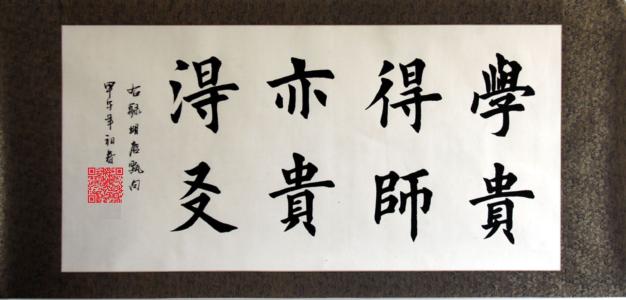 學貴
得師
亦貴
淂友
右録明唐甄句
甲午年祖